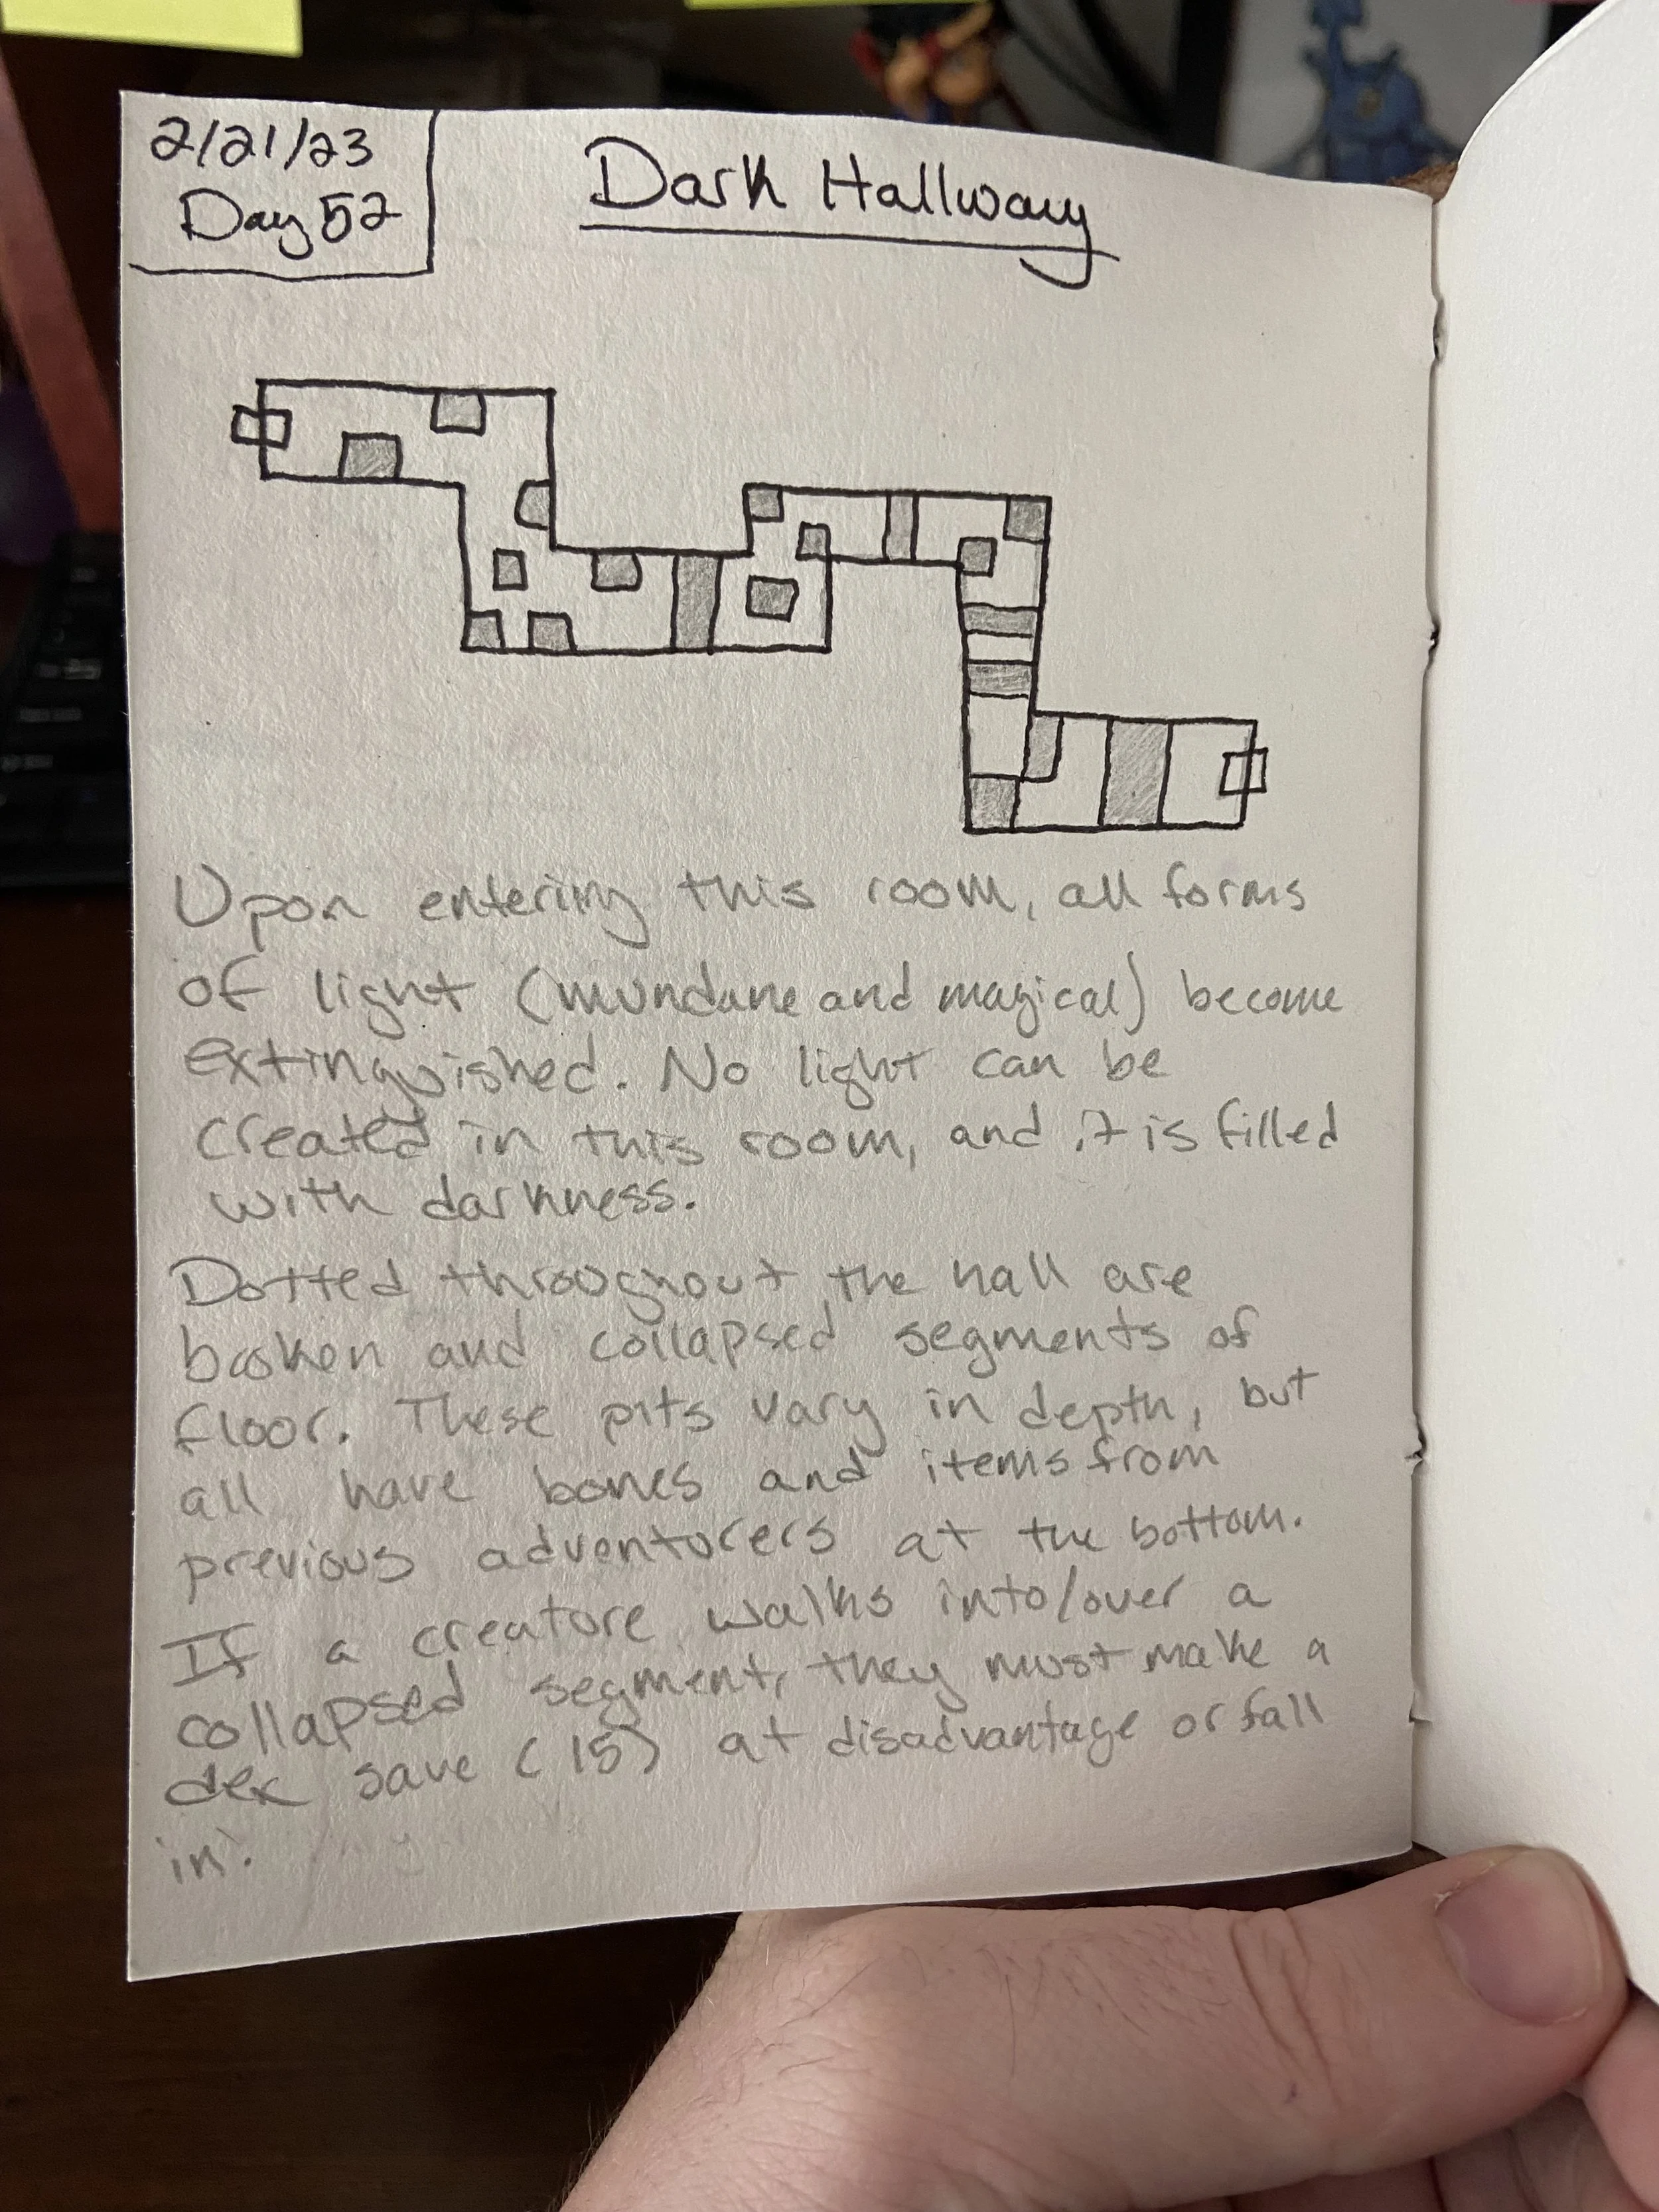 2/21/23
Day 52
Dark Hallway
Upon entering this room, all forms
of light (mundane and magical) become
extinguished. No light can be
created in this room, and it is filled
with darkness.
Dotted throughout the hall are
broken and collapsed segments of
floor. These pits vary in depth, but
all have bones and items from
previous adventurers at the bottom.
If a creature walks into/over a
collapsed segment, they must make a
dex save (15) at disadvantage or fall
in!